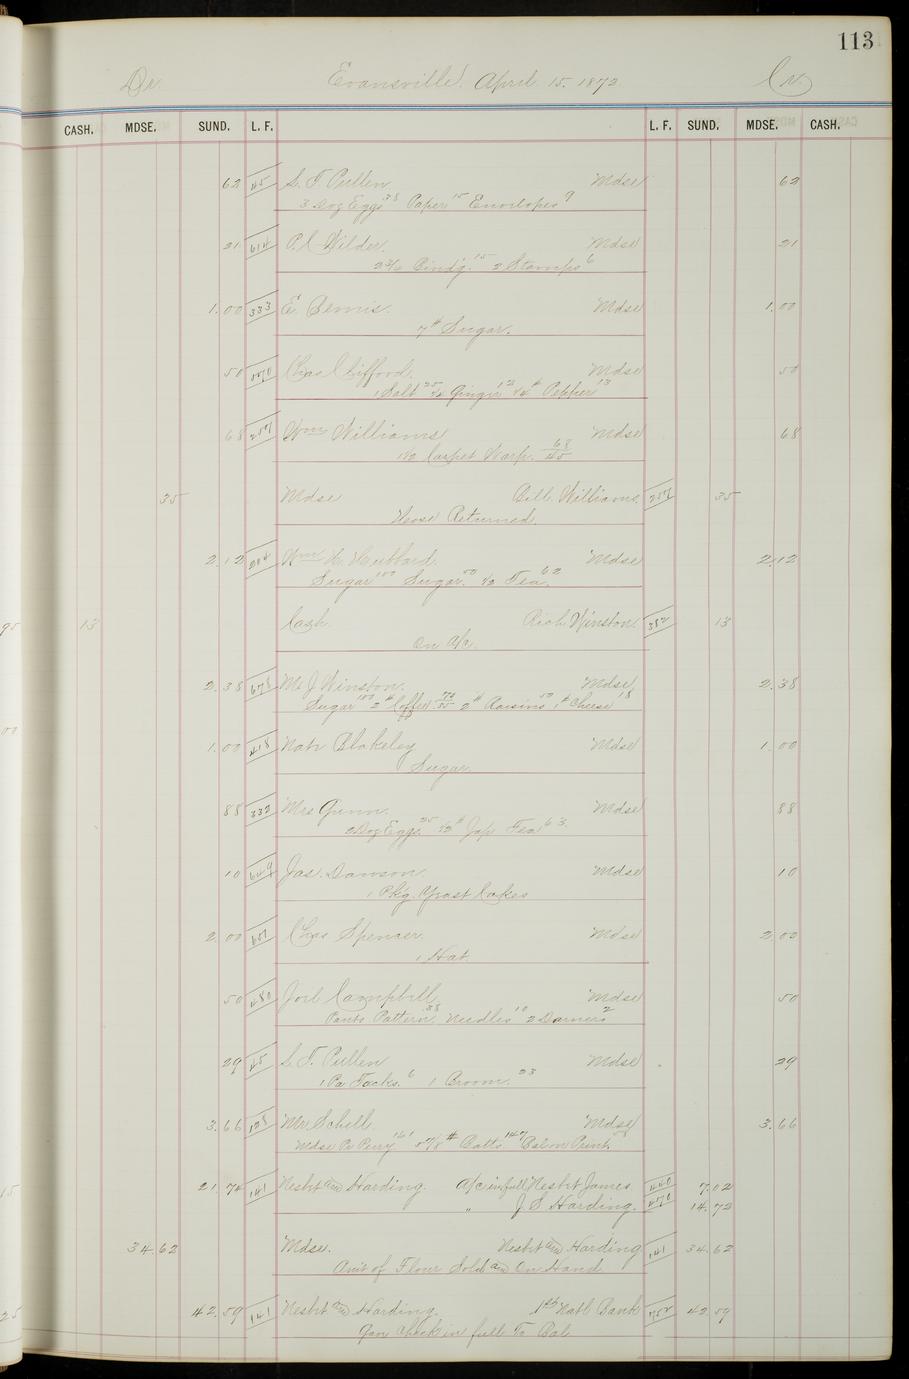 113
Dr. Evansville. April. 15. 1872 Cr.
CASH. MDSE. SUND. L. F. L. F. SUND. MDSE. CASH.
62 45 L. T. Pullen Mdse 62
3 Doz Eggs 38 Paper 15 Envelopes 9
21 614 P. C. Wilder. Mdse 21
Bind'g. 15 2 Stamps 6
1.00 333 E. Bemis. Mdse 1.00
7 # Sugar.
50 Chas Clifford. Mdse 50
1 Salt 25 1/4 Ginger 12 1/4 # Pepper 13
68 257 Wm Williams Mdse 68
1 1/2 Carpet Warp. 68/45
35 Mdse Bill Williams. 257 35
Hose Returned.
2.12 204 Wm H. Hubbard. Mdse 2.12
Sugar 100 Sugar. 50 1/2 Tea. 62
13 Cash Rich Winston. 382 13
On A/c.
2.38 678 M. J Winston. Mdse 2.38
Sugar 100 2 # Coffee 70/35 2 # Raisins 50 1 # Cheese 18
1.00 418 Nate Blakeley Mdse 1.00
Sugar.
88 332 Mrs Gunn. Mdse 88
2 Doz Eggs. 25 1/2 # Jap Tea 63
10 649 Jas. Dawson. Mdse 10
1 Pk'g. Yeast Cakes
2.00 657 Chas Spencer. Mdse 2.00
1 Hat.
50 480 Joel Campbell. Mdse 50
Pants Pattern. 38 Needles 10 2 Darners 2
29 45 L. T. Pullen Mdse 29
1 Pa Tacks. 6 1 Broom. 23
3.66 128 Mr. Schell. Mdse 3.66
Mdse Pr Perry 161 # Batts 147 Bal on Print
21.74 141 Nesbit and Harding. A/c in full Nesbit James 440 7.02
" J S Harding. 470 14.72
34.62 Mdse. Nesbit and Harding 141 34.62
Amt of Flour Sold and On Hand
42.59 141 Nesbit and Harding. 1st Natl Bank 752 42.59
Gave Check in full To Bal